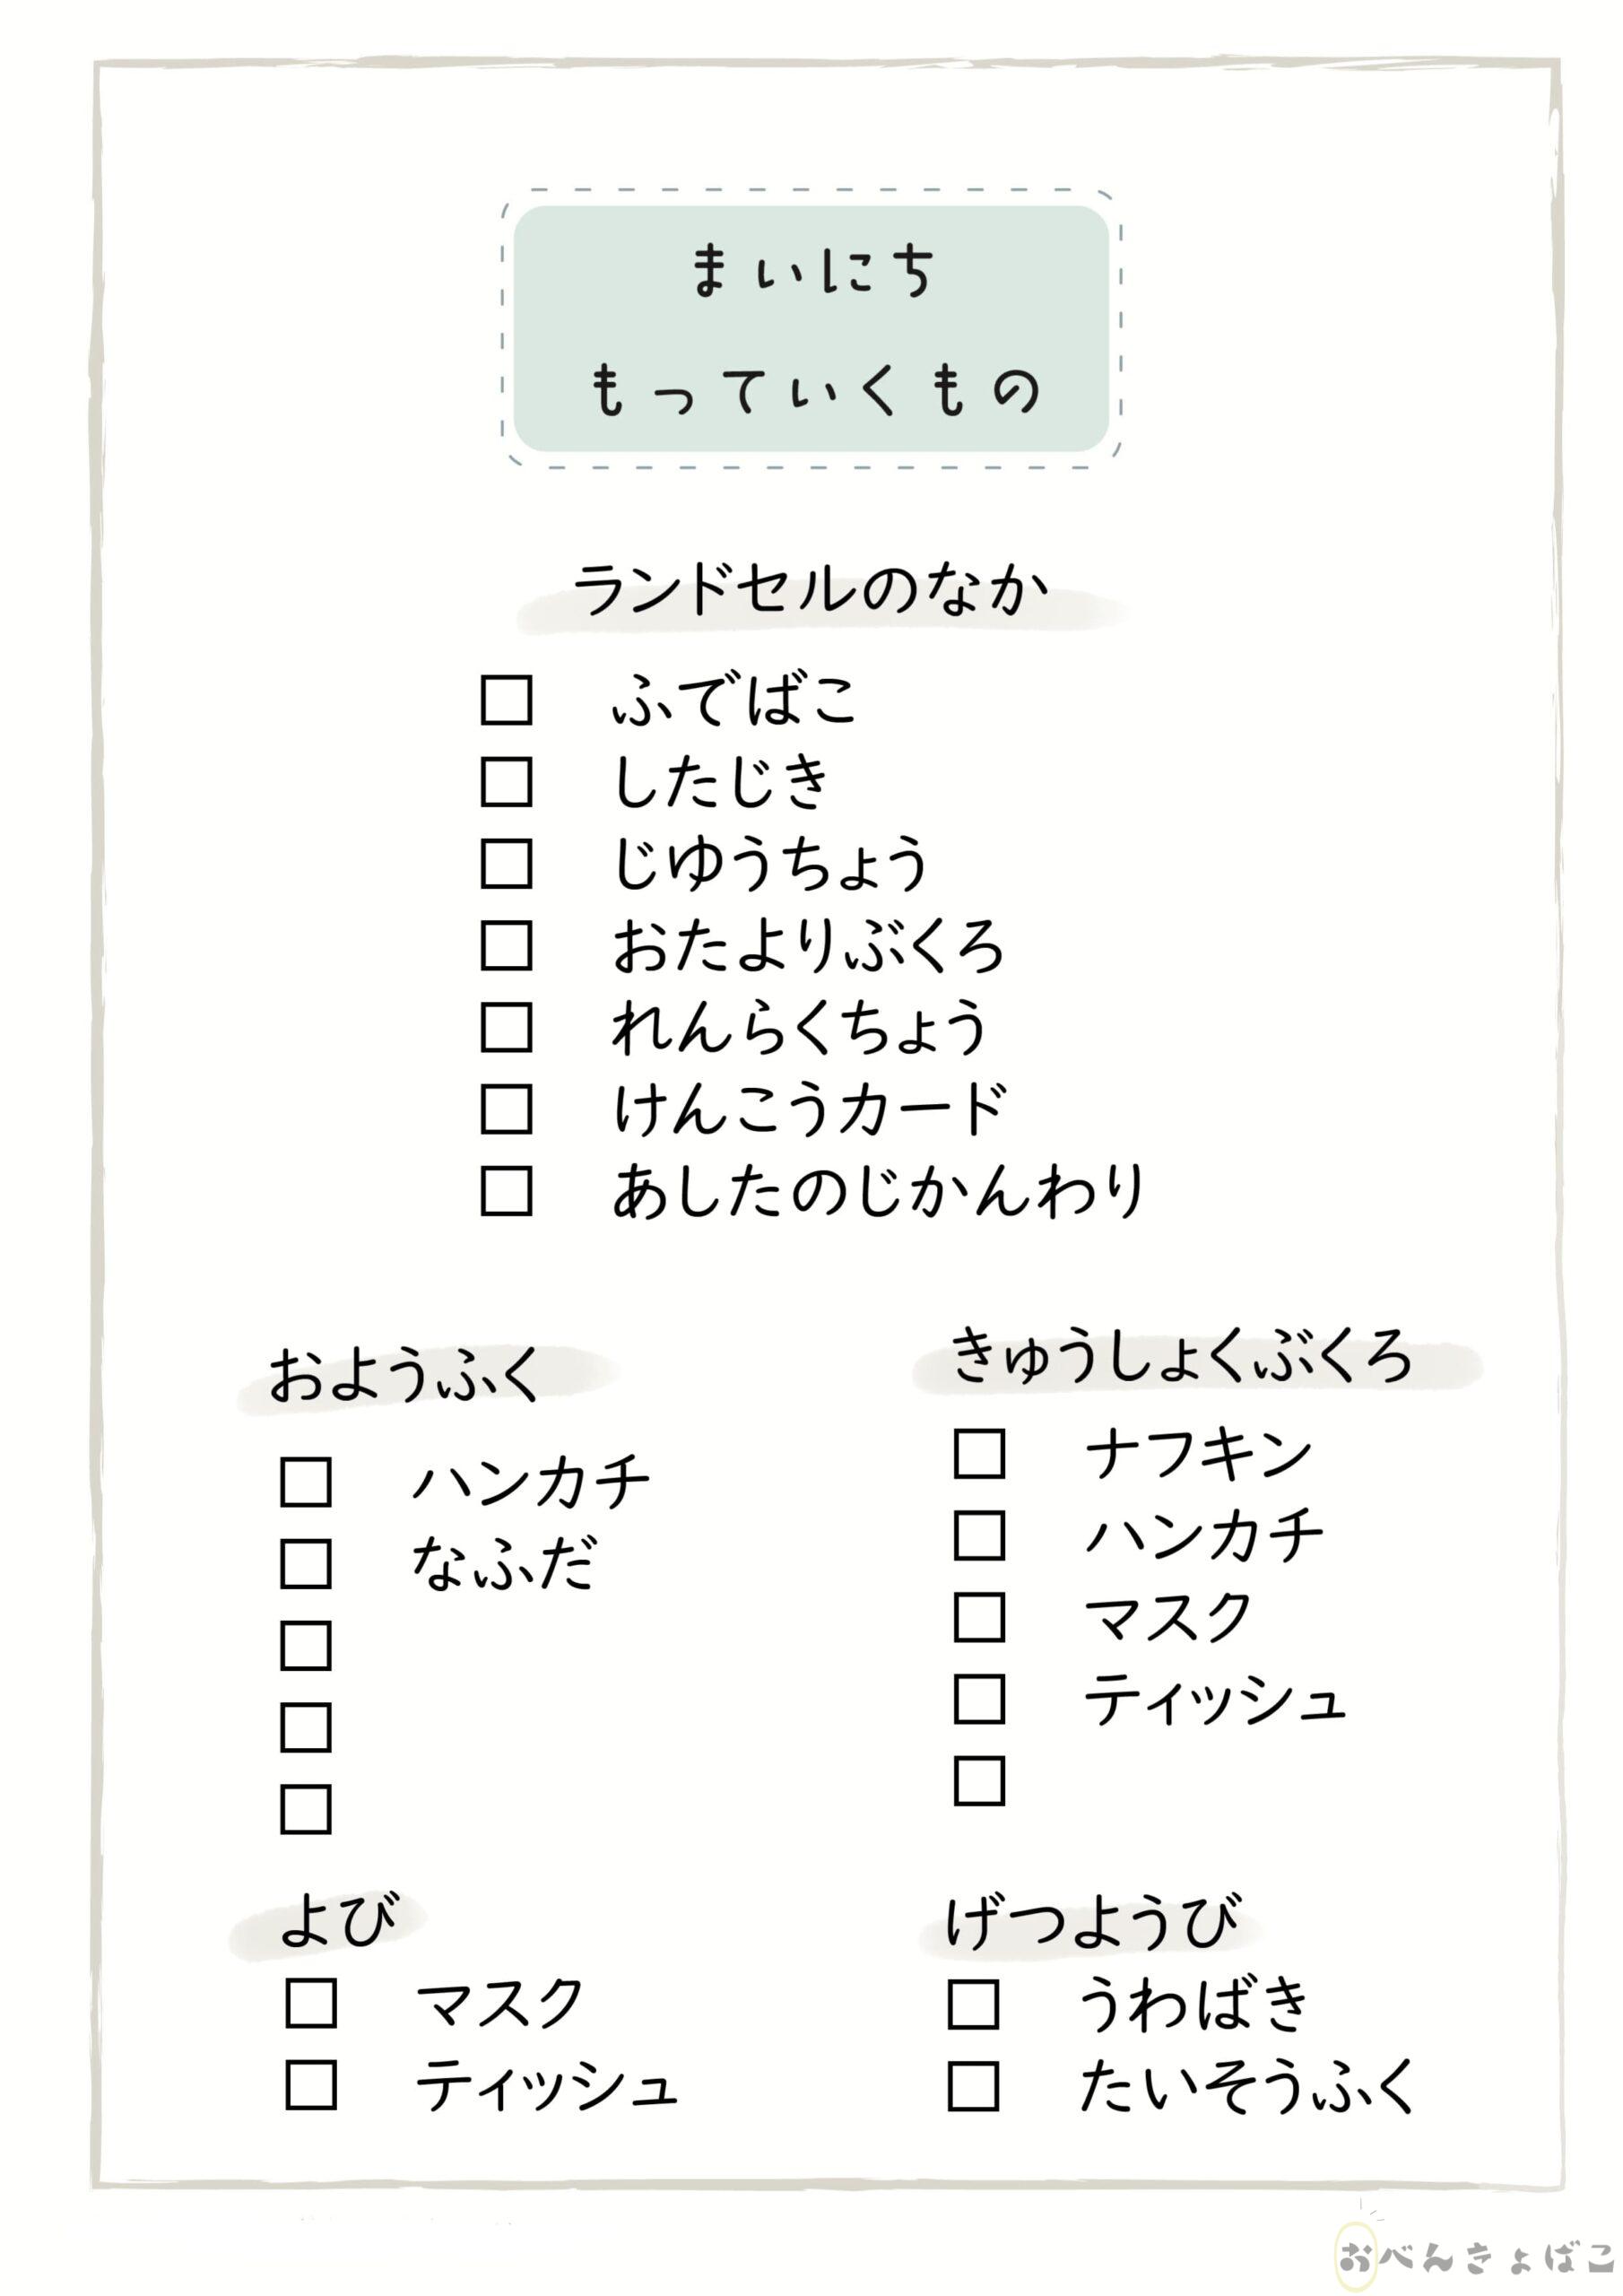 まいにち
もっていくもの
ランドセルのなか
□ ふでばこ
□ したじき
□ じゆうちょう
□ おたよりぶくろ
□ れんらくちょう
□ けんこうカード
□ あしたのじかんわり
おようふく
□ ハンカチ
□ なふだ
□
□
□
きゅうしょくぶくろ
□ ナフキン
□ ハンカチ
□ マスク
□ ティッシュ
□
よび
□ マスク
□ ティッシュ
げつようび
□ うわばき
□ たいそうふく
おべんきょばこ